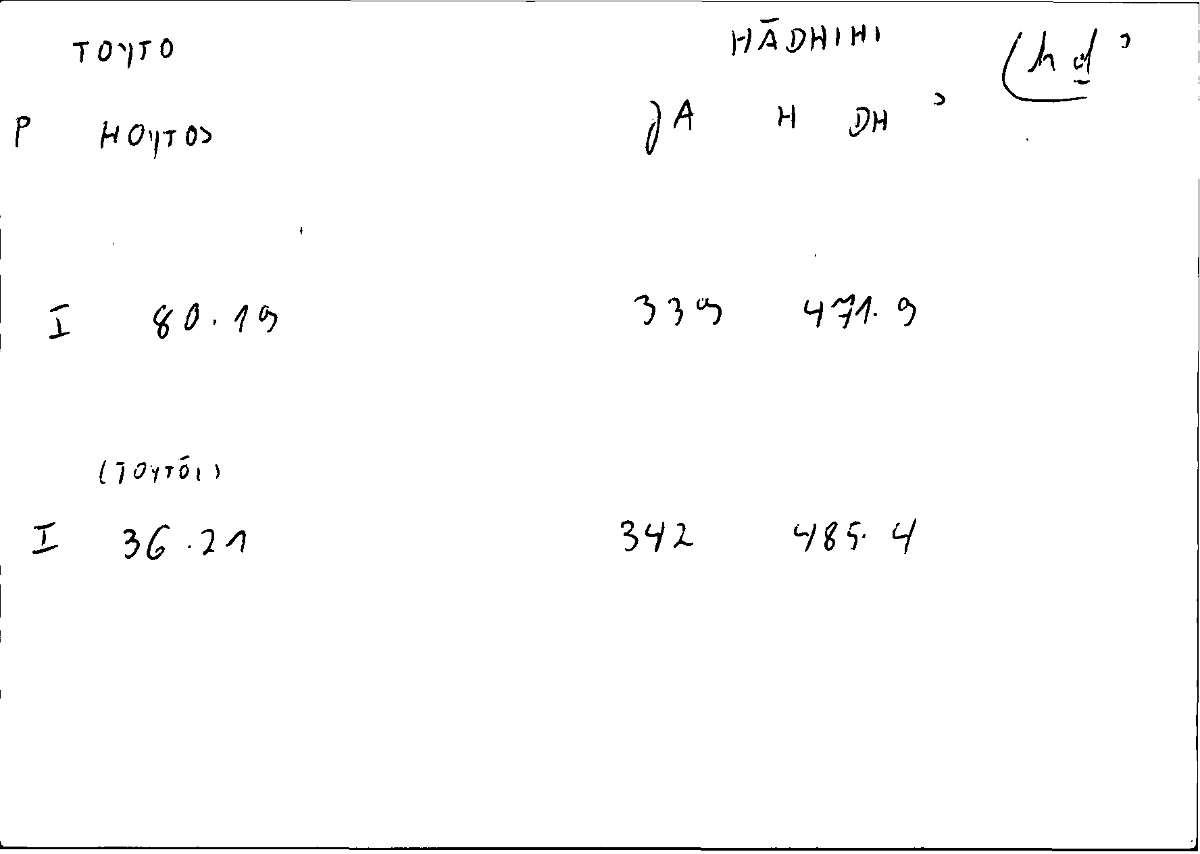 TOYTO HĀDHIHI (hḏʾ
P HOYTOS JA H DH ʾ
I 80.19 339 471.9
(TOYTŌI)
I 36.21 342 485.4